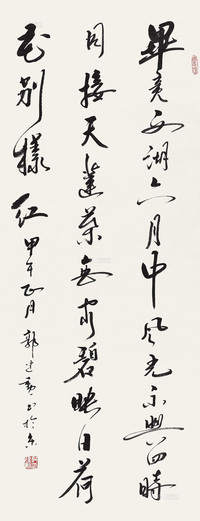 畢竟西湖六月中風光不與四時
同接天蓮葉無窮碧映日荷
花別樣紅 甲午正月 郭書於京